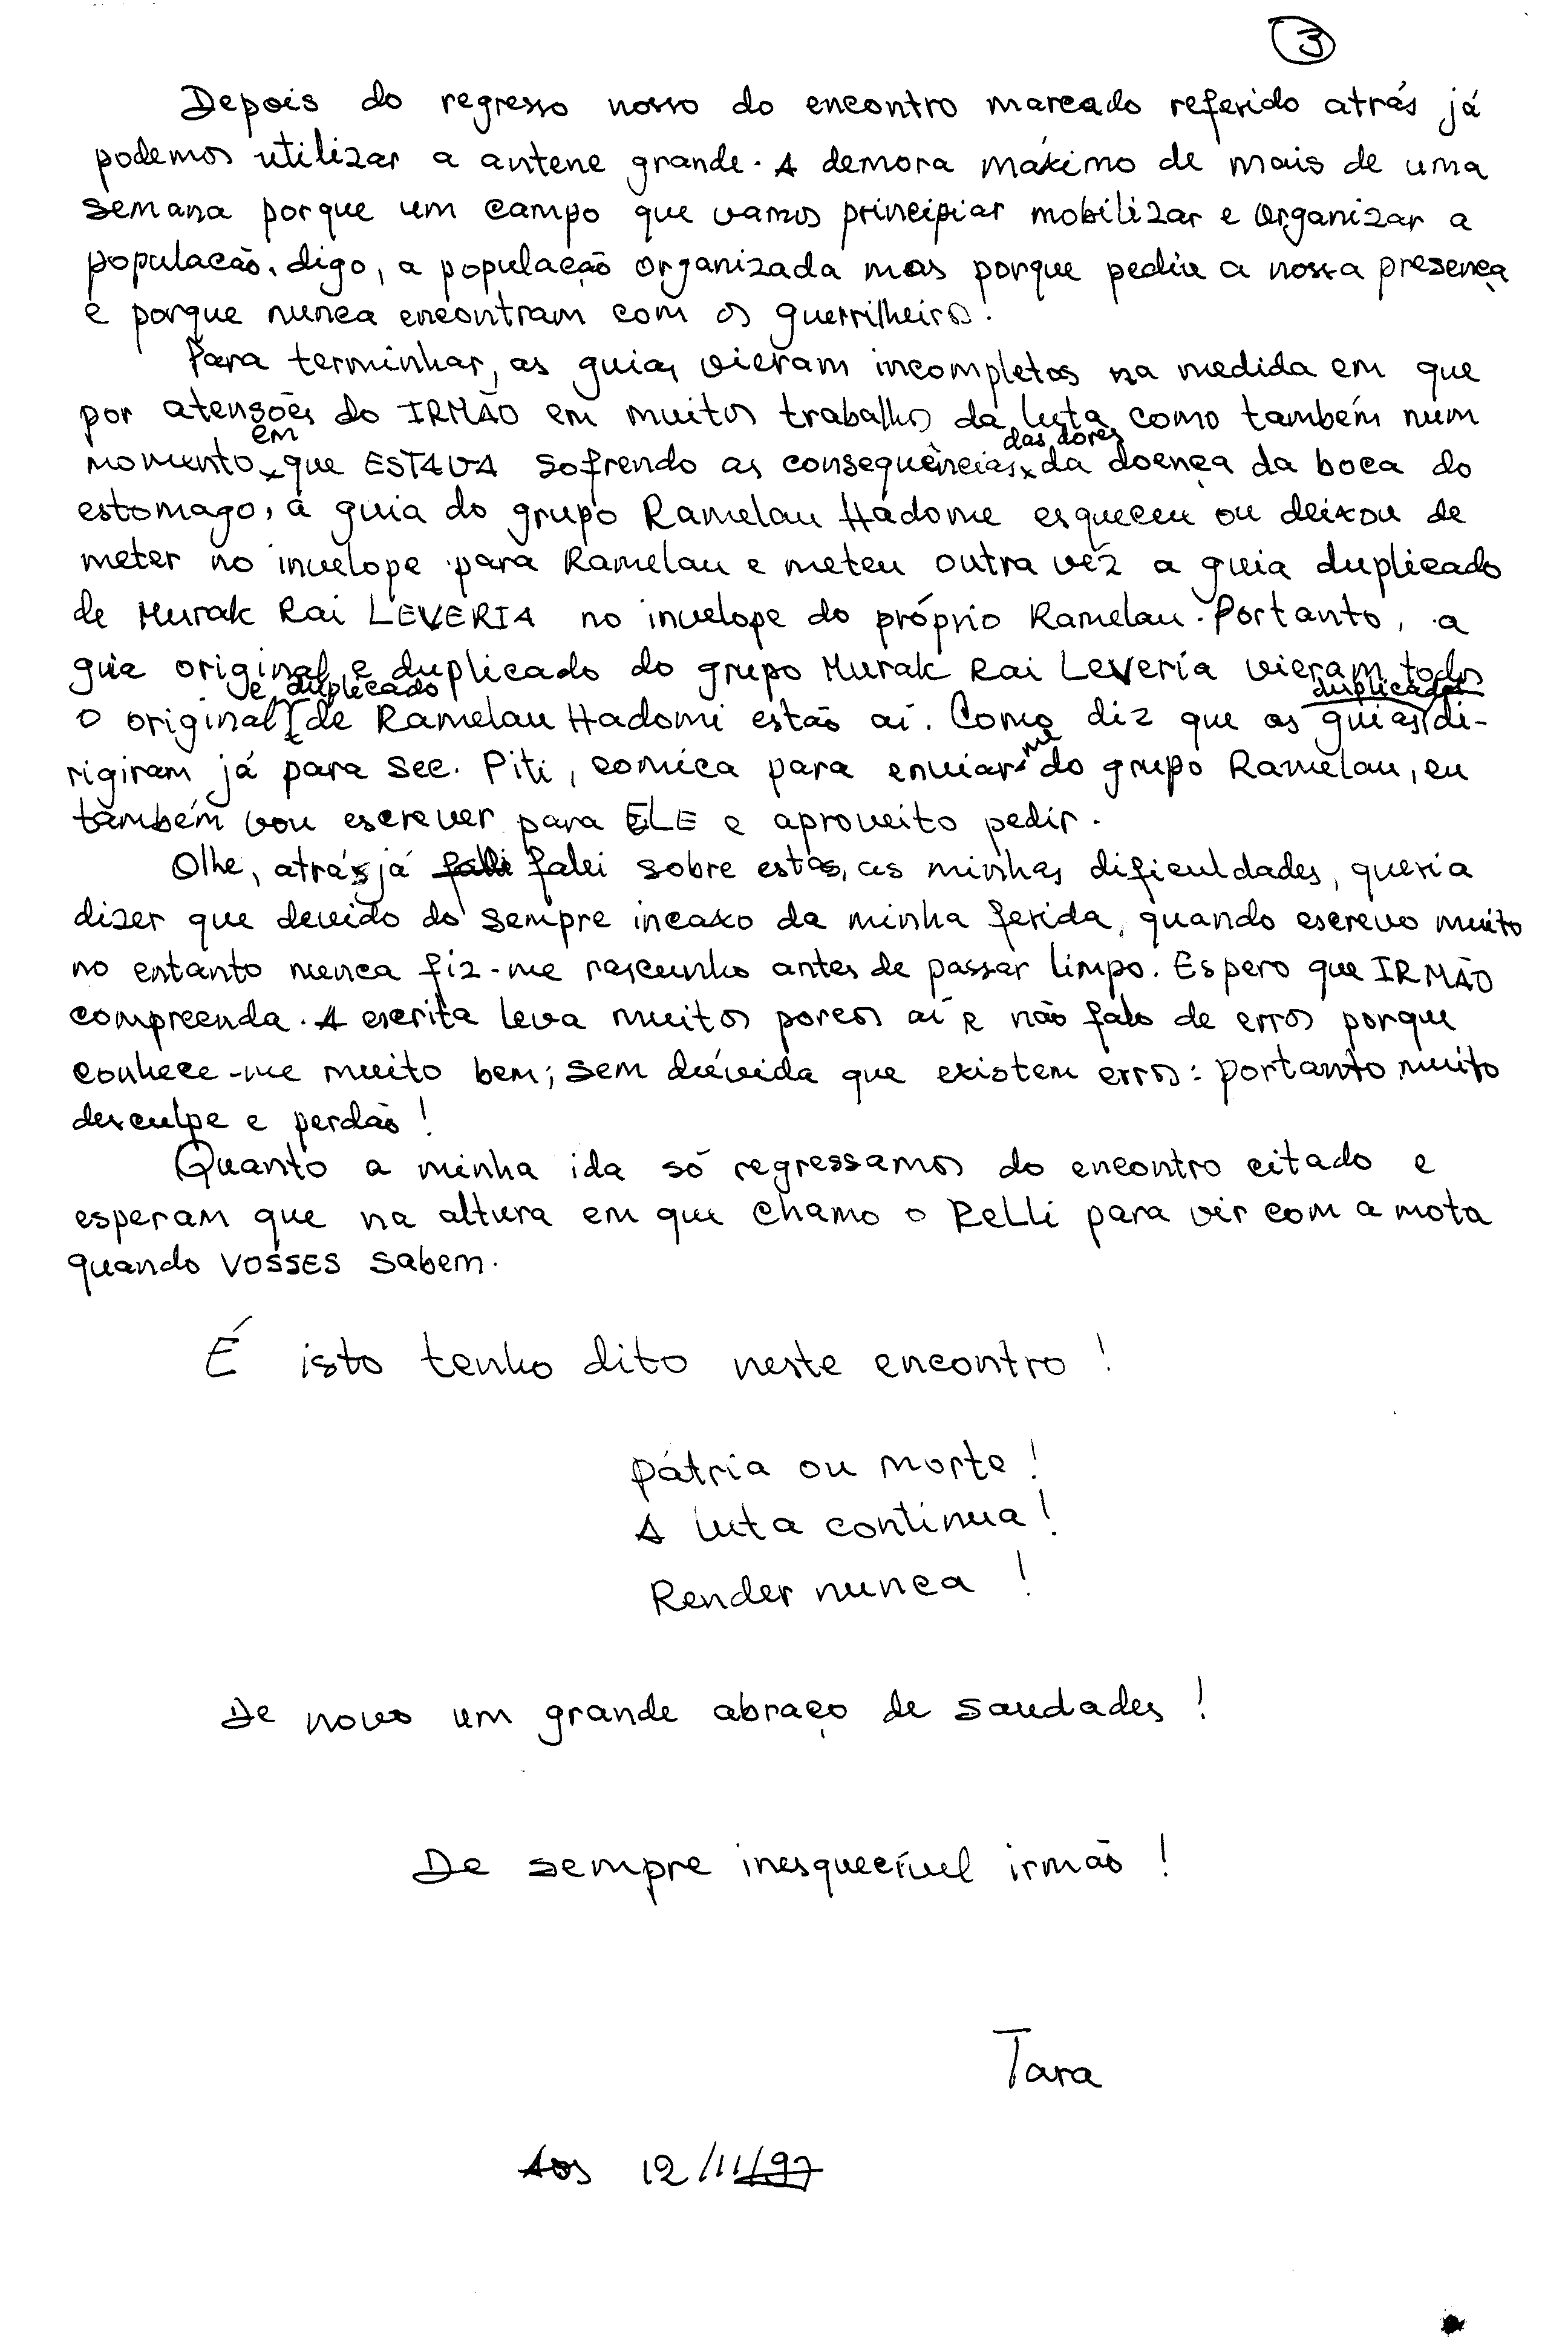 3
Depois do regresso nosso do encontro marcado referido atrás já
podemos utilizar a antene grande. A demora máximo de mais de uma
semana porque um campo que vamos principiar mobilizar e organizar a
populacão, digo, a população organizada mas porque pediu a nossa presença
e porque nunca encontram com os guerrilheiros.
Para terminhar, as guias vieram incompletos na medida em que
por atensões do IRMÃO em muitos trabalhos da luta como também num
momento em que ESTAVA sofrendo as consequências das dores da doença da boca do
estomago, a guia do grupo Ramelau Hadome esqueceu ou deixou de
meter no invelope para Ramelau e meteu outra vêz a guia duplicado
de Murak Rai LEVERIA no invelope do próprio Ramelau. Portanto, a
guia original e duplicado do grupo Murak Rai Leveria vieram todos
O original e duplicado de Ramelau Hadomi estão aí. Como diz que as guias duplicados di-
rigiram já para Sec. Piti, comica para enviar-me do grupo Ramelau, eu
também vou escrever para ELE e aproveito pedir.
Olhe, atrás já falei sobre estas, as minhas dificuldades, queria
dizer que devido do sempre incaxo da minha ferida, quando escrevo muito
no entanto nunca fiz-me rascunho antes de passar limpo. Espero que IRMÃO
compreenda. A escrita leva muitos porcos aí e não falo de erros porque
conhece-me muito bem; sem dúvida que existem erros: portanto muito
desculpe e perdão!
Quanto a minha ida só regressamos do encontro citado e
esperam que na altura em que chamo o Relli para vir com a mota
quando VOSSES sabem.
É isto tenho dito neste encontro!
Pátria ou morte!
A luta continua!
Render nunca!
De novo um grande abraço de saudades!
De sempre inesquecível irmão!
Tara
Aos 12/11/97